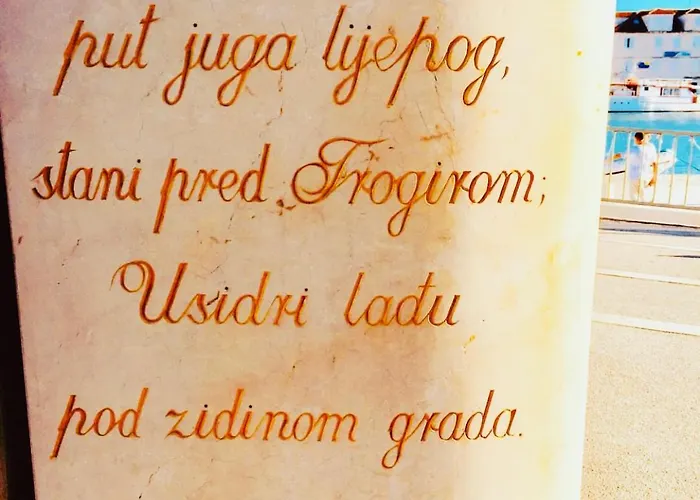 put juga lijepog,
stani pred Trogirom;
Usidri lađu
pod zidinom grada.